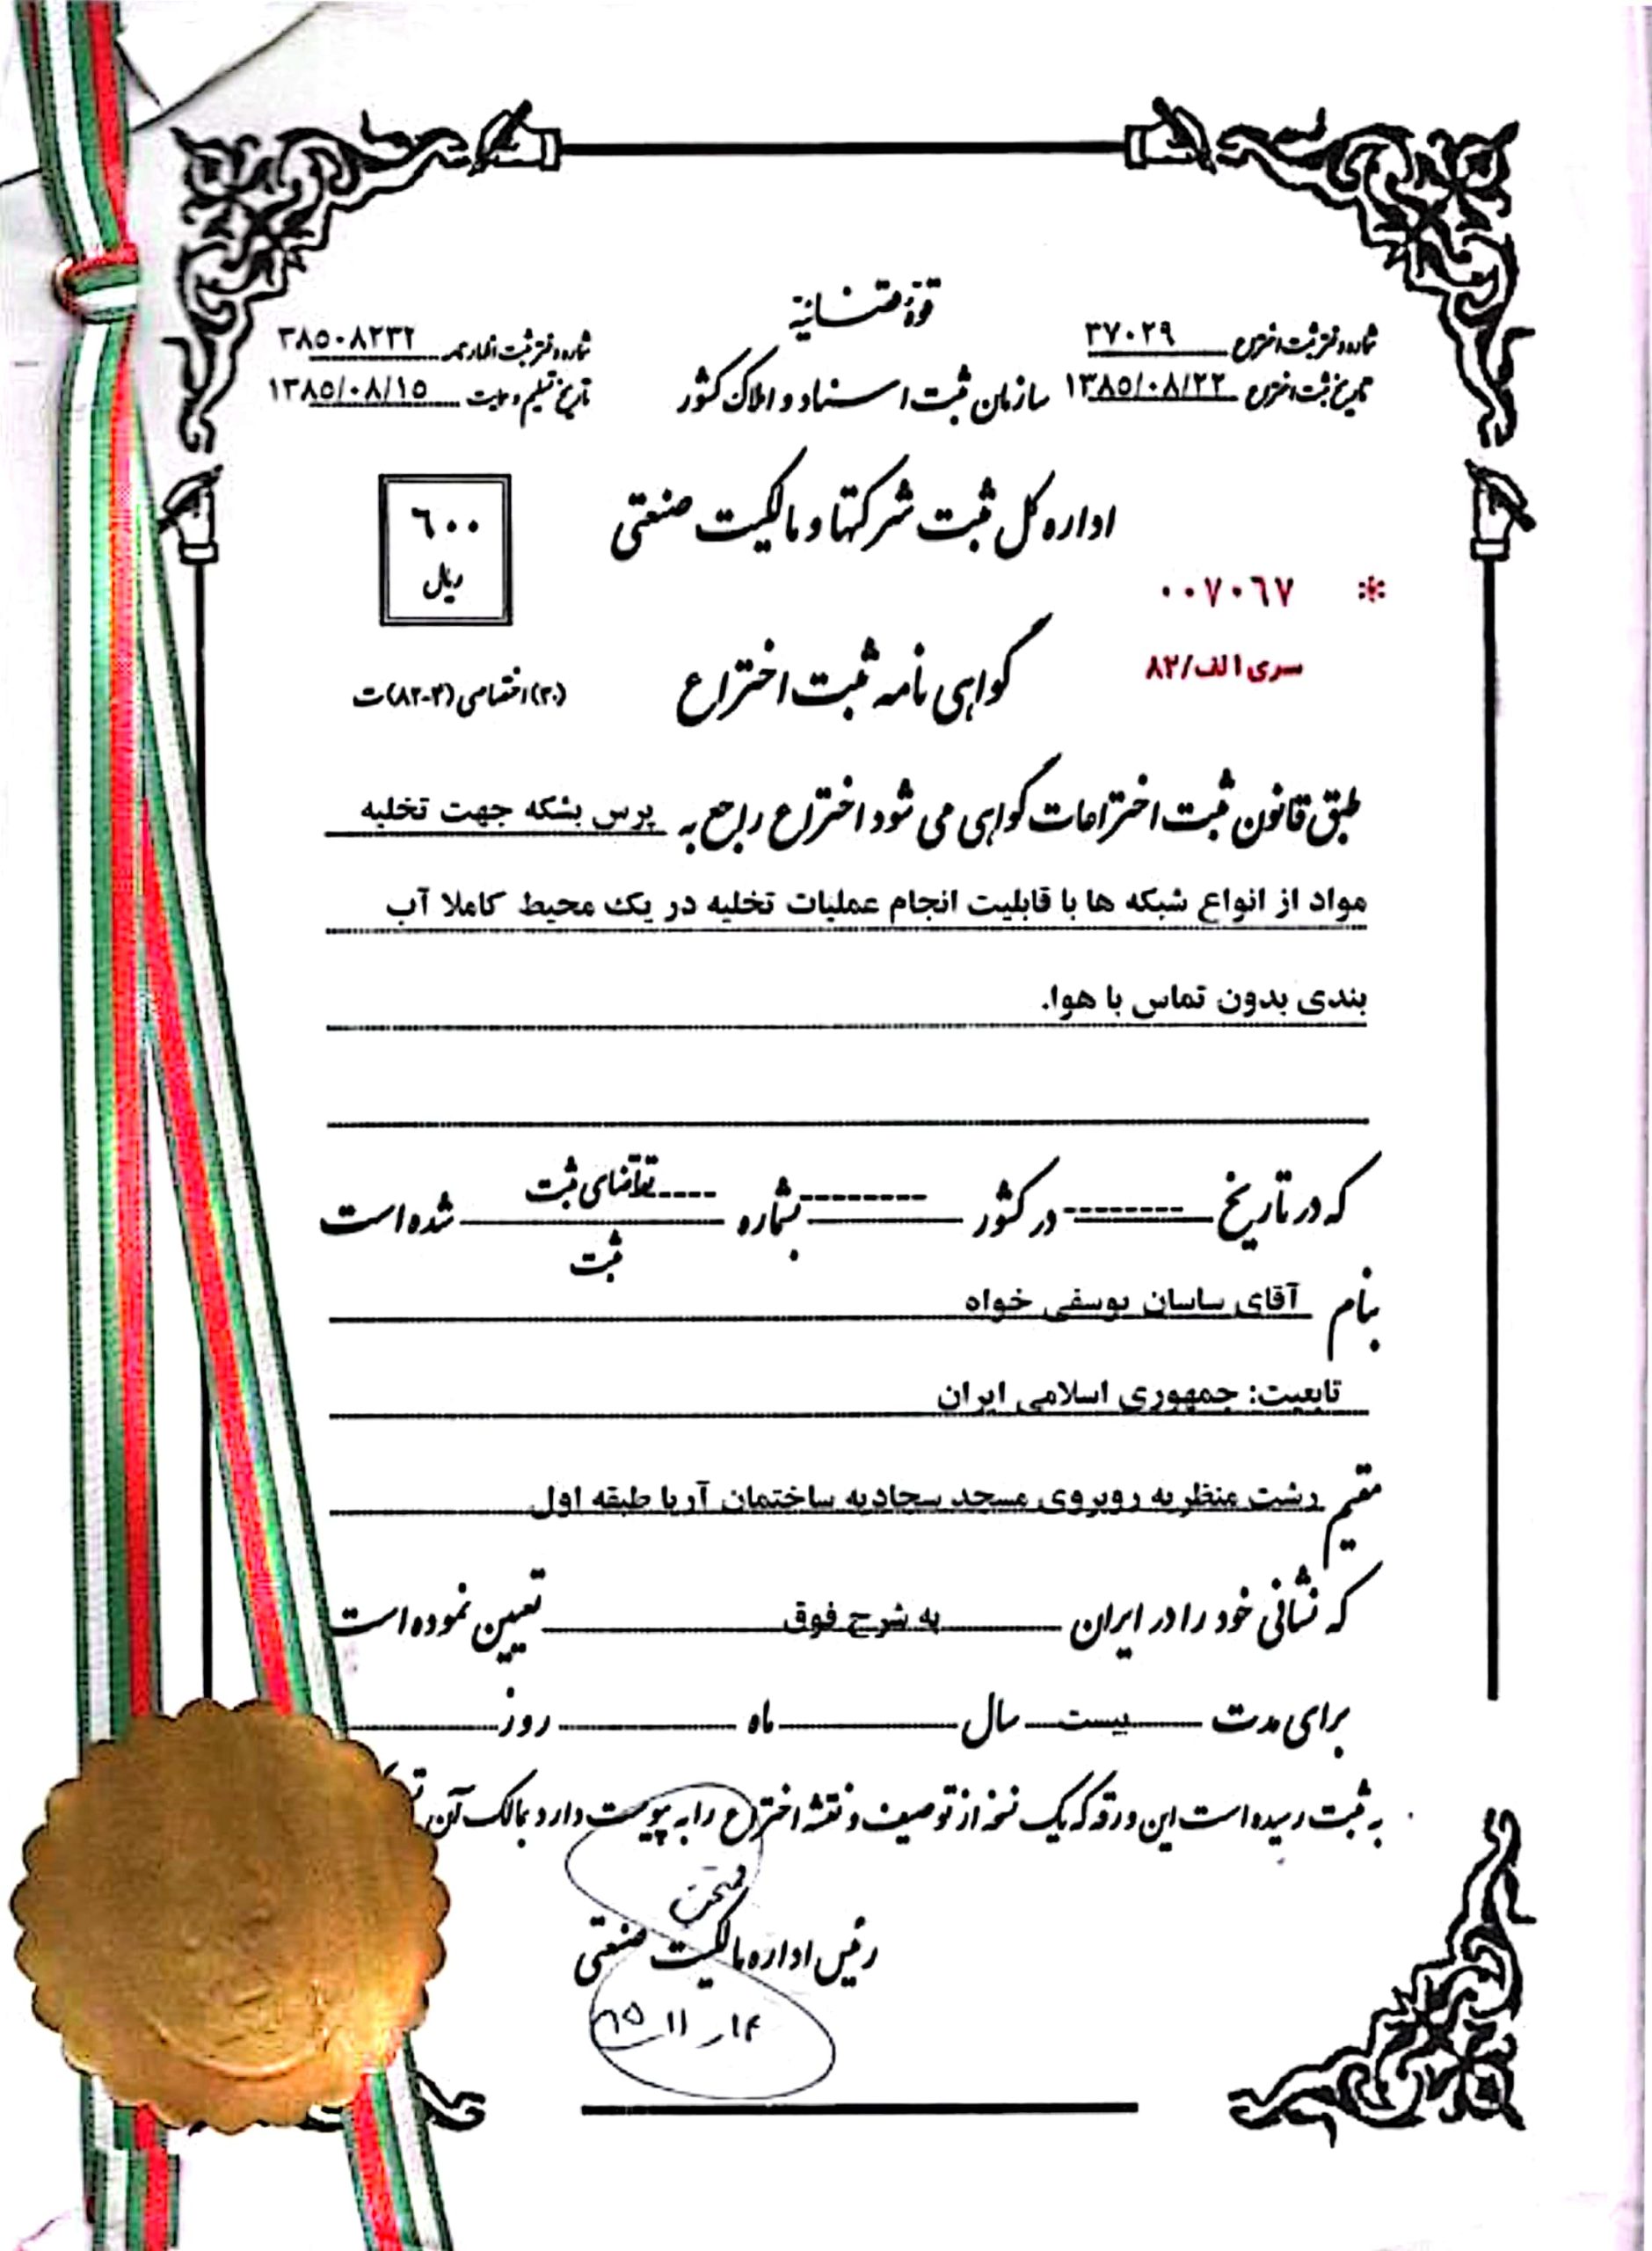 قوهٔ قضائیه
شماره دفتر ثبت اختراع ۳۷۰۲۹
شماره دفتر ثبت اظهارنامه ۳۸۵۰۸۲۳۲
سازمان ثبت اسناد و املاک کشور
تاریخ ثبت اختراع ۱۳۸۵/۰۸/۲۲
تاریخ تسلیم و ساعت ۱۳۸۵/۰۸/۱۵
اداره کل ثبت شرکتها و مالکیت صنعتی
۶۰۰
ریال
* ۰۰۷۰۶۷
سری الف/۸۲
گواهی نامه ثبت اختراع
(۳۰) اختصاصی (۴-۸۲) ت
طبق قانون ثبت اختراعات گواهی می شود اختراع راجع به پرس بشکه جهت تخلیه
مواد از انواع شبکه ها با قابلیت انجام عملیات تخلیه در یک محیط کاملا آب
بندی بدون تماس با هوا.
که در تاریخ -------- در کشور --------- بشماره ---- تقاضای ثبت شده است
ثبت
بنام آقای ساسان یوسفی خواه
تابعیت: جمهوری اسلامی ایران
مقیم رشت منظریه روبروی مسجد سجادیه ساختمان آریا طبقه اول
که نشانی خود را در ایران به شرح فوق تعیین نموده است
برای مدت بیست سال ماه روز
به ثبت رسیده است این ورقه که یک نسخه از توصیف و نقشه اختراع را به پیوست دارد بمالک آن
رئیس اداره مالکیت صنعتی